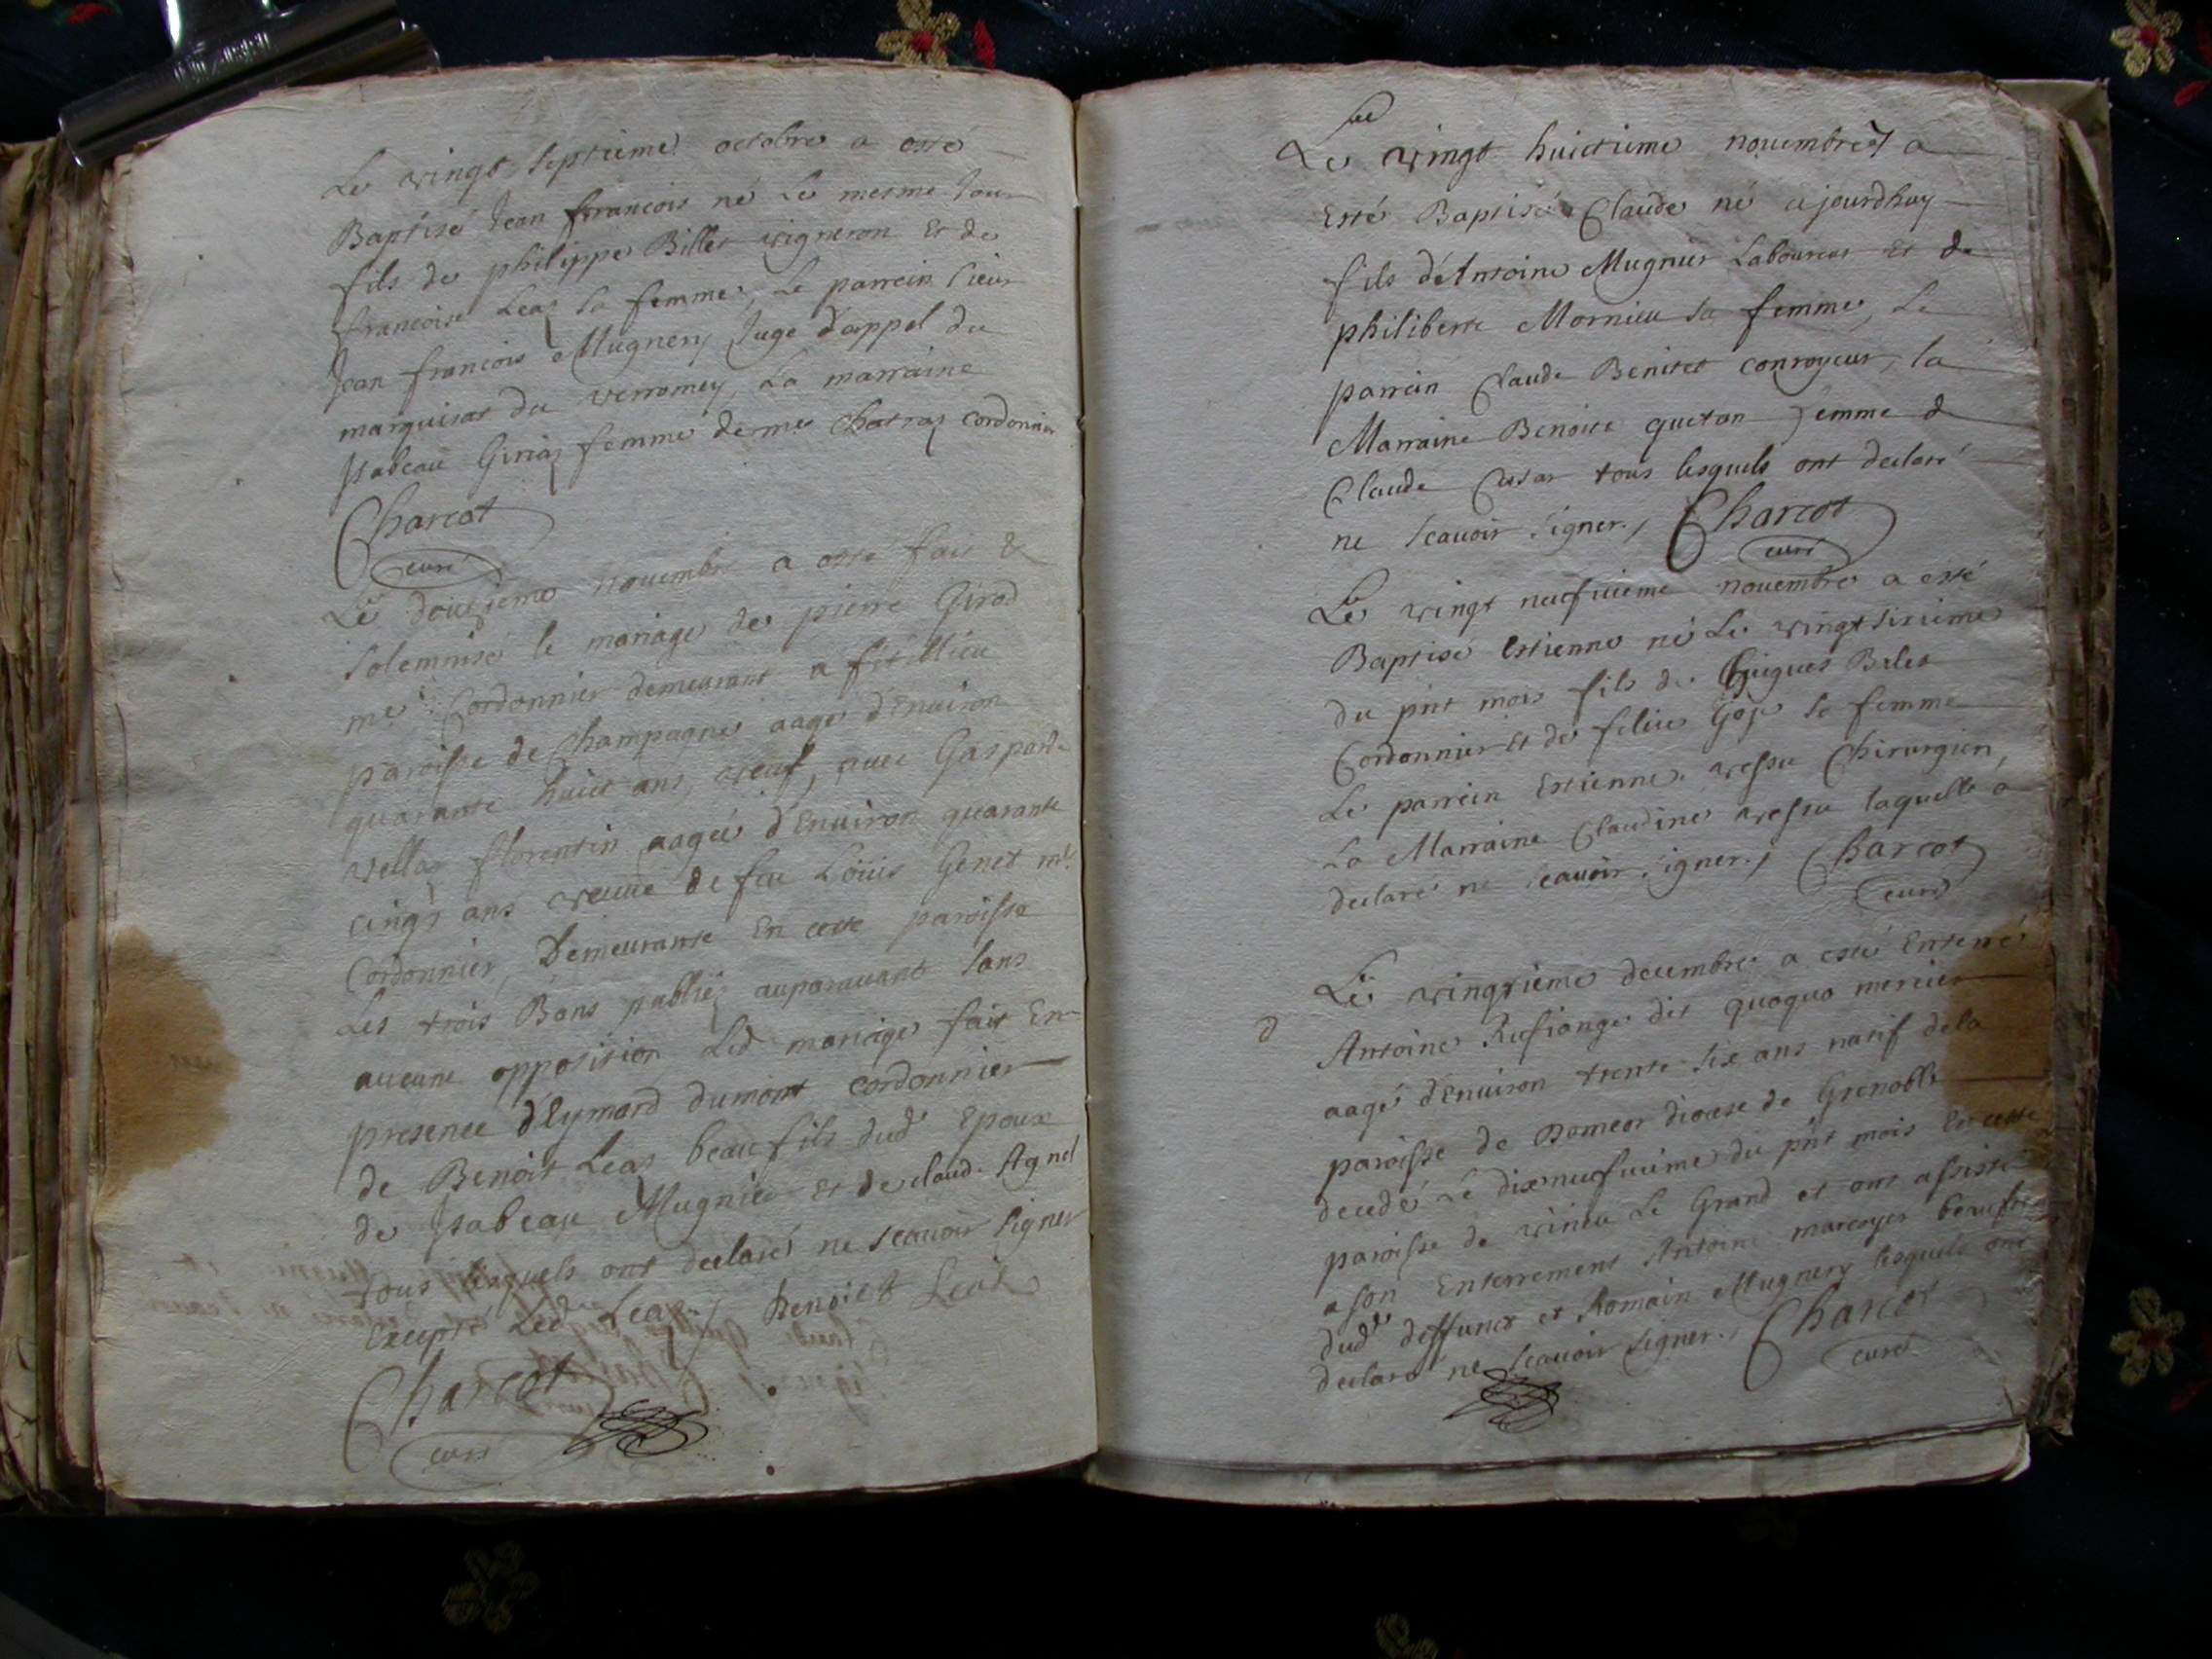 Le vingt septieme octobre a esté
Baptisé Jean francois né Le mesme Jour
fils de philippe Billet vigneron Et de
francoise Leaz sa femme, Le parrein sieur
Jean francois Mugnery Juge d'appel du
marquisat du verromey, La marraine
Isabeau Giriaz femme de me Chatraz cordonnier
Charcot
curé
Le douzieme novembre a esté fait &
solemnisé le mariage de pierre Girod
me Cordonnier demeurant a
paroisse de Champagne aagé d'Environ
quarante huict ans, veuf, avec Gasparde
vellaz florentin aagée d'Environ quarante
cinq ans veuve de feu Loüis Genet me
Cordonnier, Demeurante En cette paroisse
Les trois Bans publiez auparavant sans
aucune opposition Led mariage fait En
presence d'Eymard dumont cordonnier
de Benoit Leaz beau fils dud Epoux
de Isabeau Mugnier Et de claude Agnel
tous lesquels ont declaré ne scavoir signer
Excepté Led Leaz benoict Leat
Charcot
curé
Le vingt huictieme novembre a
Esté Baptisé Claude né ajourdhuy
fils d'Antoine Mugnier Laboureur et de
philiberte Mornieu sa femme, Le
parrein Claude Benitet conroyeur, la
Marraine Benoite quetan femme d
Claude tous lesquels ont declaré
ne scavoir signer., Charcot
curé
Le vingt neufvieme novembre a esté
Baptisé Estienne né Le vingt sixieme
du pnt mois fils de Guigues Billet
Cordonnier Et de Goje sa femme
Le parrein Estienne vessu Chirurgien,
La Marraine Claudine vessu laquelle a
declaré ne scavoir signer., Charcot
curé
Le vingtieme decembre a esté Enterré
Antoine Rufiange dit quoquo mercier
aagé d'Environ trente six ans natif de la
paroisse de diocese de Grenoble
decedé Le dixneufvieme du pnt mois En cette
paroisse de virieu Le Grand et ont assisté
a son Enterrement Antoine marcoyer beaufrere
dud deffunct et Romain Mugnery lesquels ont
declaré ne scavoir signer., Charcot
curé